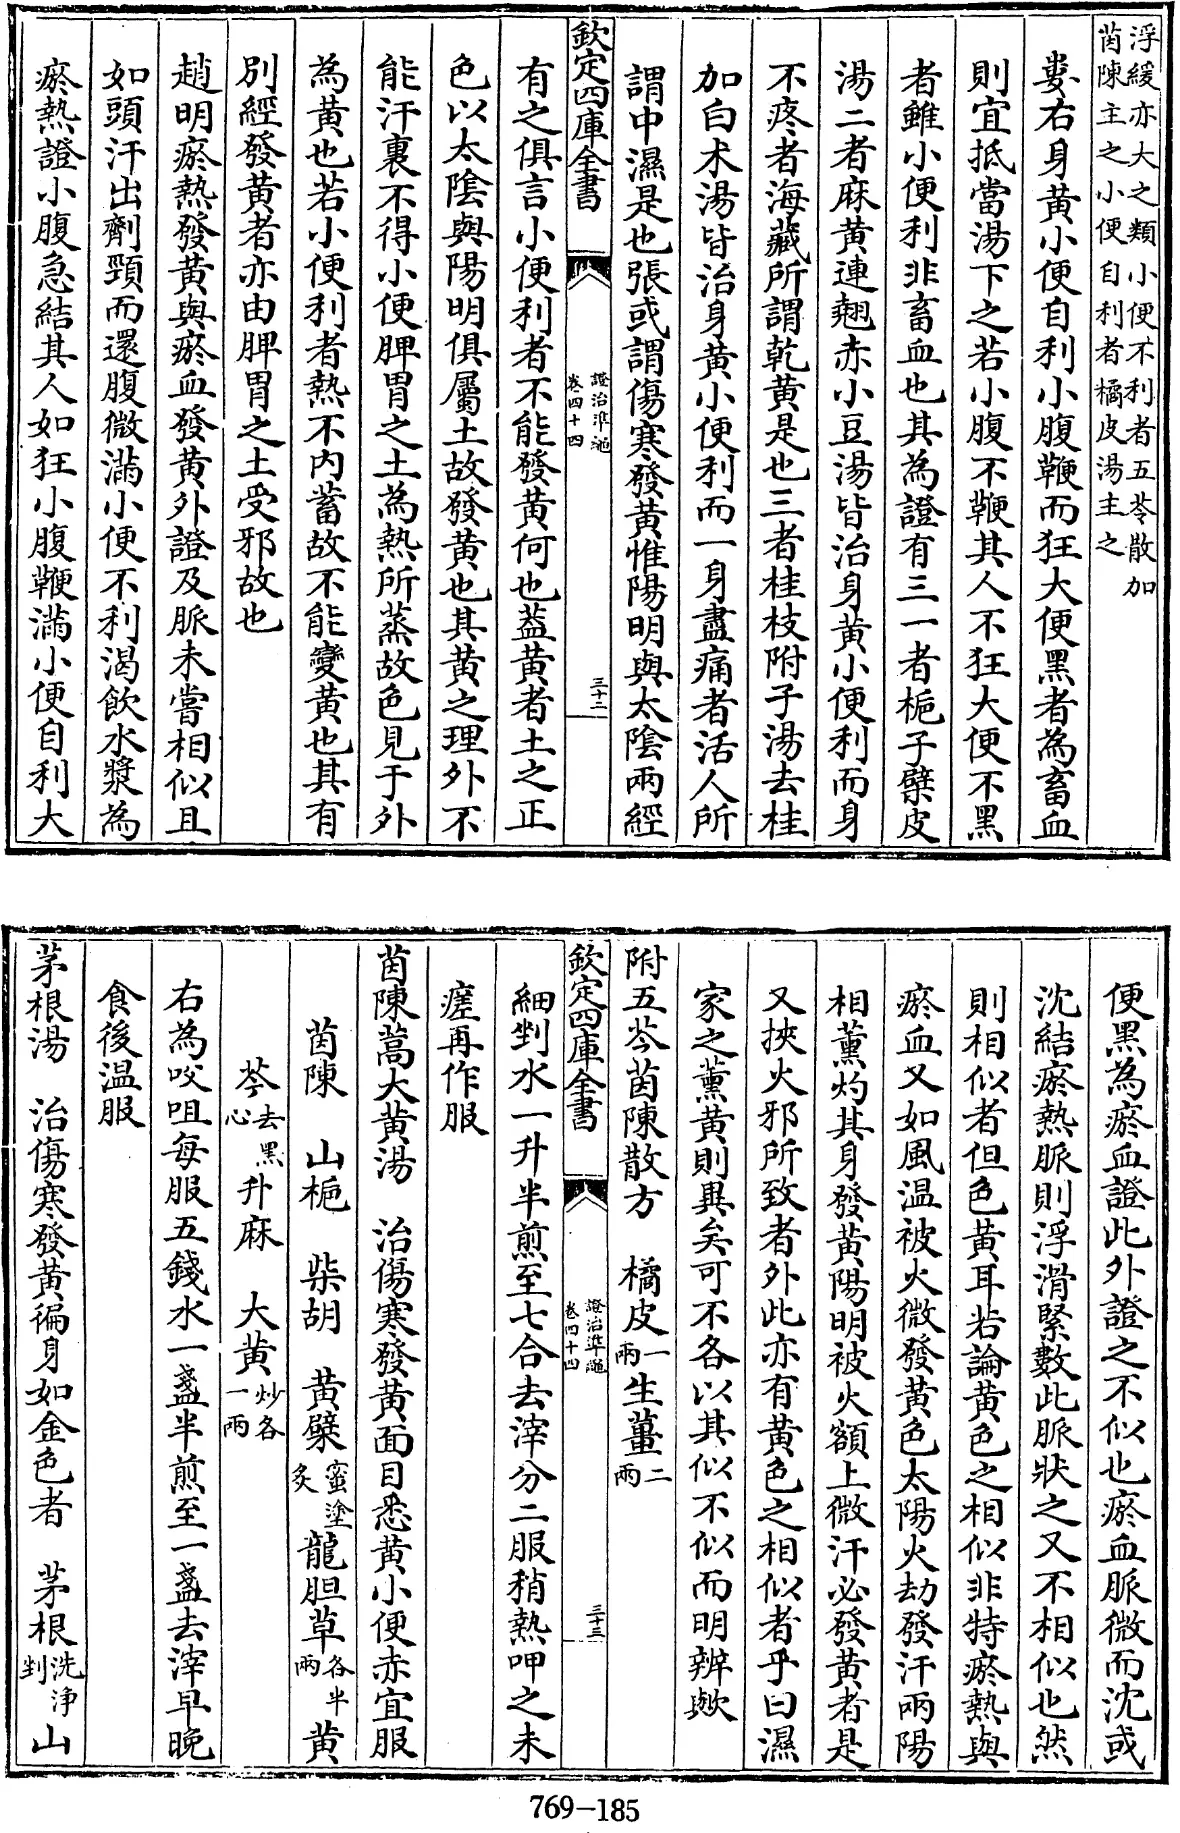 浮緩亦大之類小便不利者五苓散加
茵陳主之小便自利者橘皮湯主之
婁右身黃小便自利小腹鞕而狂大便黑者為畜血
則宜抵當湯下之若小腹不鞕其人不狂大便不黑
者雖小便利非畜血也其為證有三一者梔子蘗皮
湯二者麻黃連翹赤小豆湯皆治身黃小便利而身
不疼者海藏所謂乾黃是也三者桂枝附子湯去桂
加白术湯皆治身黃小便利而一身盡痛者活人所
謂中濕是也張或謂傷寒發黃惟陽明與太陰兩經
欽定四庫全書
證治準繩
卷四十四
三十二
有之俱言小便利者不能發黃何也葢黃者土之正
色以太陰與陽明俱屬土故發黃也其黃之理外不
能汗裏不得小便脾胃之土為熱所蒸故色見于外
為黃也若小便利者熱不內蓄故不能變黃也其有
別經發黃者亦由脾胃之土受邪故也
趙明瘀熱發黃與瘀血發黃外證及脈未嘗相似且
如頭汗出劑頸而還腹微滿小便不利渴飲水漿為
瘀熱證小腹急結其人如狂小腹鞕滿小便自利大
便黑為瘀血證此外證之不似也瘀血脈微而沈或
沈結瘀熱脈則浮滑緊數此脈狀之又不相似也然
則相似者但色黃耳若論黃色之相似非特瘀熱與
瘀血又如風温被火微發黃色太陽火劫發汗兩陽
相薰灼其身發黃陽明被火額上微汗必發黃者是
又挾火邪所致者外此亦有黃色之相似者乎曰濕
家之薰黃則異矣可不各以其似不似而明辨歟
附五苓茵陳散方　橘皮一兩生薑二兩
欽定四庫全書
證治準繩
卷四十四
三十三
細剉水一升半煎至七合去滓分二服稍熱呷之未
瘥再作服
茵陳蒿大黃湯　治傷寒發黃面目悉黃小便赤宜服
茵陳　山梔　柴胡　黃蘗蜜塗炙龍胆草各半兩黃
芩去黑心升麻　大黃炒各一兩
右為㕮咀每服五錢水一盞半煎至一盞去滓早晚
食後温服
茅根湯　治傷寒發黃徧身如金色者　茅根洗淨剉山
769-185